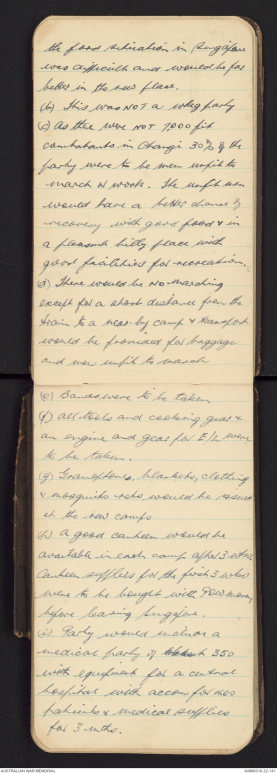 the food situation in Singapore
was difficult and would be far
better in the new place.
(b) This was NOT a wkg party
(c) As there were NOT 7000 fit
combatants in Changi 30% of the
party were to be men unfit to
march or work. The unfit men
would have a better chance of
recovery with good food & in
a pleasant hilly place with
good facilities for recreation.
(d) There would be NO marching
except for a short distance from the
train to a near-by camp & transport
would be provided for baggage
and men unfit to march
(e) Bands were to be taken
(f) all tools and cooking gear &
an engine and gear for E/L were
to be taken.
(g) Gramophones, blankets, clothing
& mosquito nets would be issued
at the new camps
(h) a good canteen would be
available in each camp after 3 wks.
Canteen supplies for the first 3 wks
were to be bought with POW money
before leaving Singapore.
(i) Party would include a
medical party of about 350
with equipment for a central
hospital with accom for 400
patients & medical supplies
for 3 mths.
AUSTRALIAN WAR MEMORIAL